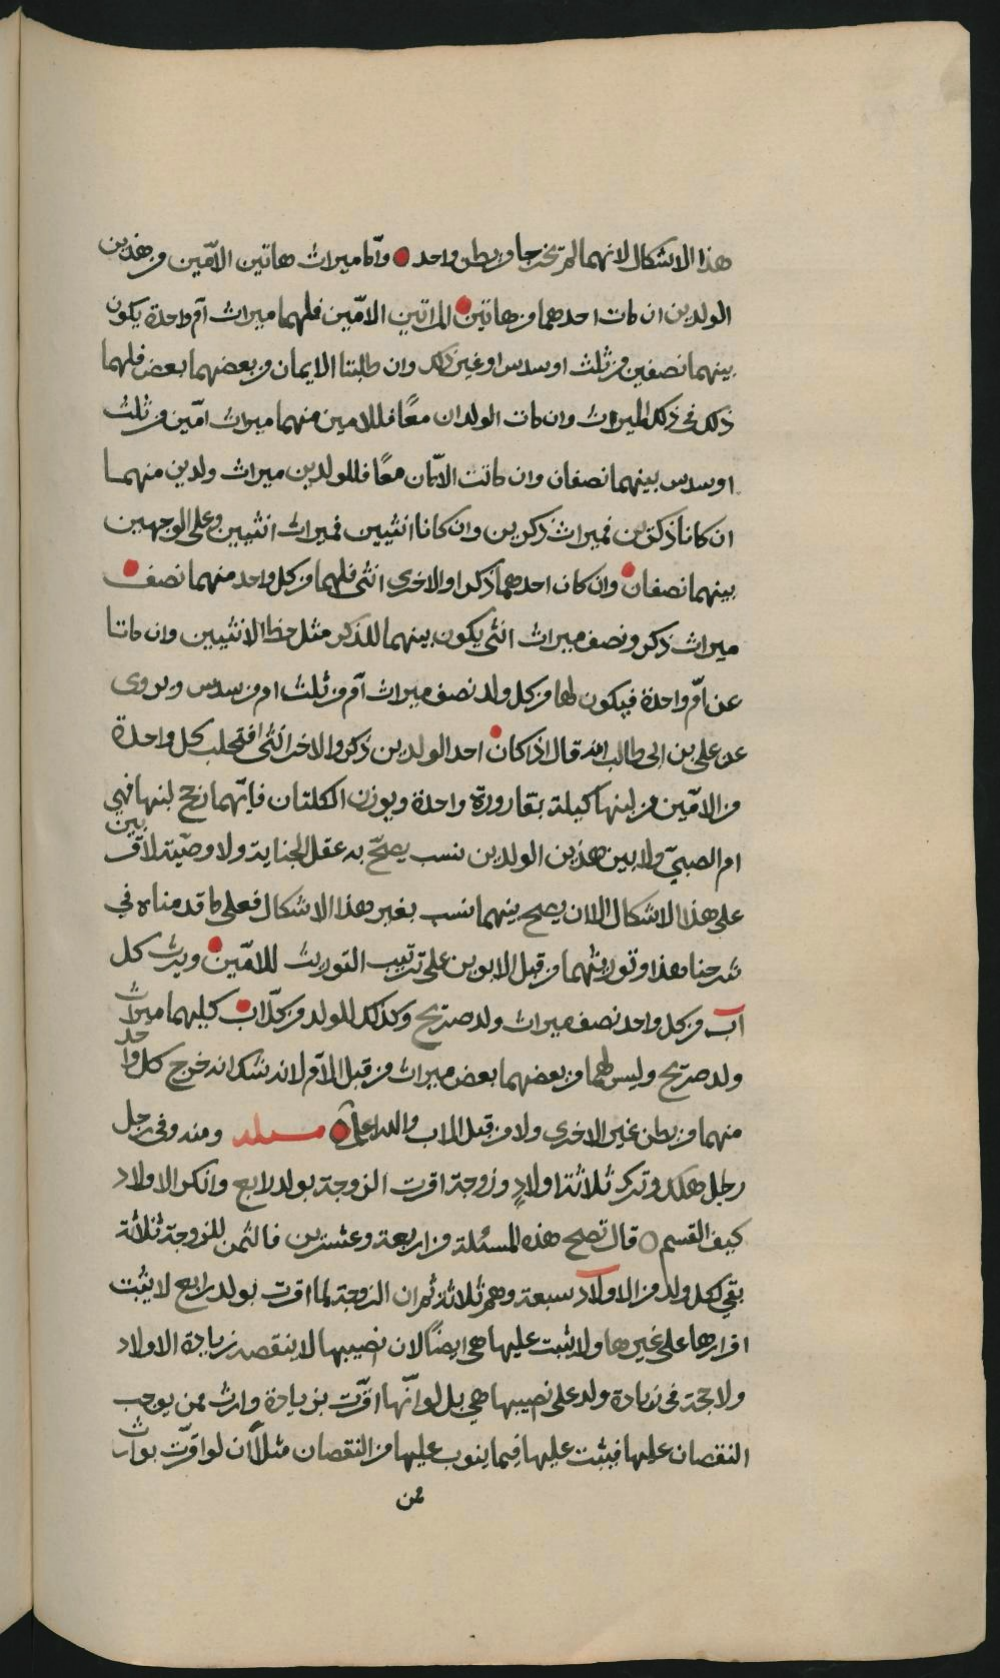 هذا الاشكال لانهما لم تخرجا من بطن واحد واما ميراث هاتين الامّين من هذين
الولدين ان مات احدهما من هاتين المراتين الامّين فلهما ميراث ام واحدة يكون
بينهما نصفين من ثلث او سدس او غير ذلك وان طلبتا الايمان من بعضهما بعض فلهما
ذلك في ذلك الميراث وان مات الولدان معًا فللامين منهما ميراث امّين من ثلث
او سدس بينهما نصفان وان ماتت الامّان معًا فللولدين ميراث ولدين منهما
ان كانا ذكرين فميراث ذكرين وان كانا انثيين فميراث انثيين وعلى الوجهين
بينهما نصفان وان كان احدهما ذكرا والاخرى انثى فلهما من كل واحد منهما نصف
ميراث ذكر ونصف ميراث انثى يكون بينهما للذكر مثل حظ الانثيين وان ماتا
عن امّ واحدة فيكون لها من كل ولد نصف ميراث ام من ثلث او من سدس ويروى
عن علي بن ابي طالب انه قال اذا كان احد الولدين ذكر والاخر انثى افتحلب كل واحدة
من الامّين من لبنها كيلة بقارورة واحدة ويوزن الكلتان فايتهما رجح لبنها فهي
ام الصبيّ ولا بين هذين الولدين نسب يصحّ به عقل لجناية ولا وصيّة لاقربين
على هذا الاشكال الا ان يصح بينهما نسب بغير هذا الاشكال فعلى ما قدمناه في
شرحنا هذا وتوريثهما من قبل الابوين على ترتيب التوريث للامّين ويرث كل
اب من كل واحد نصف ميراث ولد صريح وكذلك للولد من كلّ اب كليهما ميراث
ولد صريح وليس لهما من بعضهما بعض ميراث من قبل الامّ لانه نشك انه خرج كل واحد
منهما من بطن غير الاخرى ولا من قبل الاب والله اعلم مسئلة ومنه وفي رجل
رجل هلك وترك ثلاثة اولادٍ وزوجة اقرت الزوجة بولد رابع وانكر الاولاد
كيف القسم قال تصح هذه المسئلة من اربعة وعشرين فالثمن للزوجة ثلاثة
بقي لكل ولد من الاولاد سبعة وهم ثلاثة ثم ان الزوجة لما اقرت بولد رابع لا يثبت
اقرارها على غيرها ولا يثبت عليها هي ايضًا لان نصيبها لا ينقصه زيادة الاولاد
ولا حجة في زيادة ولد على نصيبها هي بل لو انّها اقرّت بزيادة وارث ممن يوجب
النقصان عليها فيثبت عليها فيما ينوب عليها من النقصان مثلًا ان لو اقرّت بوارث
من